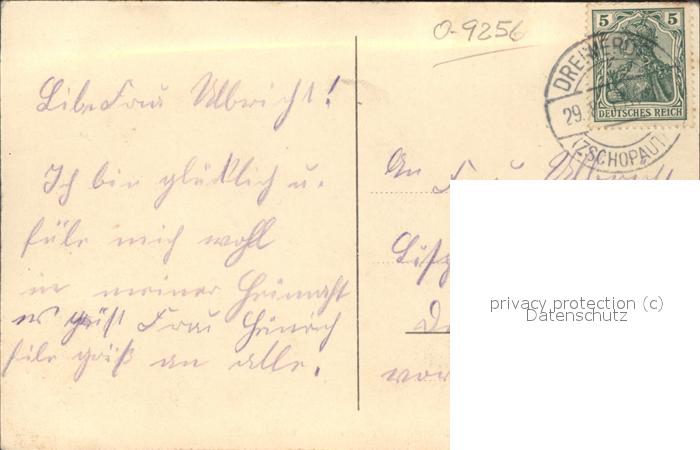 O-9256
5 5
DEUTSCHES REICH
DREIWERDEN
29.
(ZSCHOPAUT
Libe Frau Ulbricht!
Ich bin glüklich u.
füle mich wohl
in meiner Heimaht
es grüst Frau Heinrich
file grüß an alle.
An Frau Ulbricht
privacy protection (c)
Datenschutz